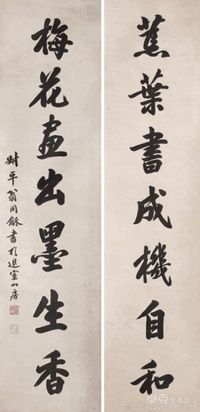 蕉葉書成機自和
梅花畫出墨生香
尌平翁同龢書於退室山房